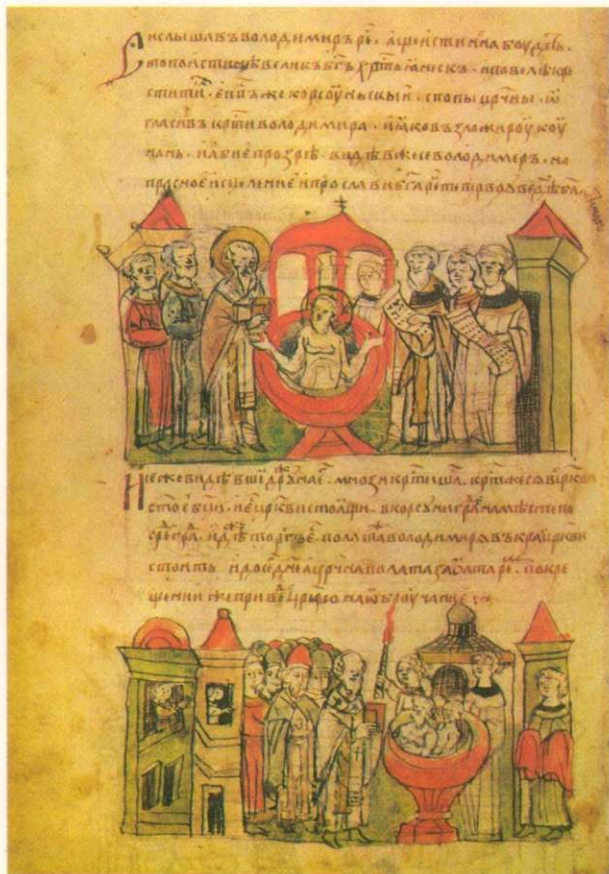 И слышавъ володимиръ рє҃. аще истинна боудєть.
то поистинѣ вєликъ б҃ъ хр҃тьꙗнєскъ. и повєлѣ кр҃
стити. єп҃пъ жє корсоуньскыи. с попы цр҃чны. ѡ
гласивъ кр҃ти володимира. и ꙗко възложи роукоу
нань. и абиє прозрѣ. видѣвжє сє володимєръ. на
прасноє исцєлєниє и прослави б҃а рє҃ то пєрвоє видѣ б҃а
сє жє видѣвшє дроужина єго. мнози кр҃тишас. кр҃тжєсѧ въ цр҃кви
ст҃оє б҃ци. и єсть цр҃кви стоꙗщи. в корсуни градѣ на мѣстє по
срєдѣ града. идѣжє торгъ дѣють. полата жє володимирѧ въ краи цр҃кви
стоить и до сєго днє. а цр҃чна полата за ѡлтарємь. по крє
щєнии жє привєдє цр҃цю на ѡброучаньє